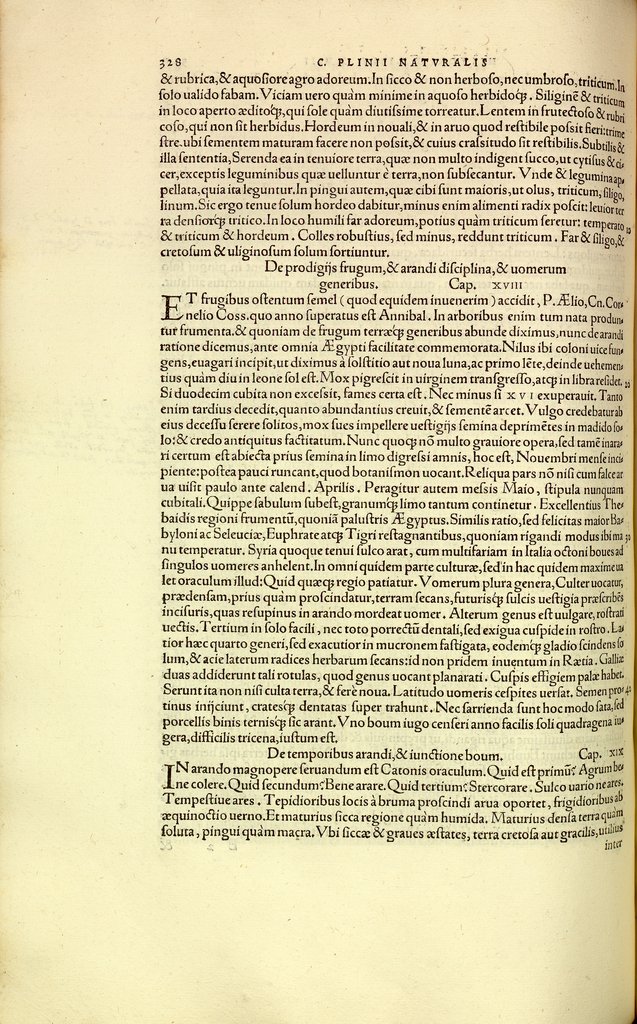 328 C. PLINII NATVRALIS
& rubrica,& aquoſiore agro adoreum.In ſicco & non herboſo,nec umbroſo,triticum.In
ſolo ualido fabam.Viciam uero quàm minime in aquoſo herbidoq;. Siliginē & triticum
in loco aperto ædito q;,qui ſole quàm diutiſsime torreatur.Lentem in frutectoſo & rubri
coſo,qui non ſit herbidus.Hordeum in nouali,& in aruo quod reſtibile poſsit fieri:trime
ſtre.ubi ſementem maturam facere non poſsit,& cuius craſsitudo ſit reſtibilis.Subtilis &
illa ſententia,Serenda ea in tenuiore terra,quæ non multo indigent ſucco,ut cytiſus & ci
cer,exceptis leguminibus quæ uelluntur è terra,non ſubſecantur. Vnde & legumina ap
pellata,quia ita leguntur.In pingui autem,quæ cibi ſunt maioris,ut olus, triticum, ſiligo,
linum.Sic ergo tenue ſolum hordeo dabitur,minus enim alimenti radix poſcit: leuior ter
ra denſiorq; tritico.In loco humili far adoreum,potius quàm triticum ſeretur: temperato 10
& triticum & hordeum . Colles robuſtius, ſed minus, reddunt triticum . Far & ſiligo,&
cretoſum & uliginoſum ſolum ſortiuntur.
De prodigijs frugum,& arandi diſciplina,& uomerum
generibus. Cap. XVIII
ET frugibus oſtentum ſemel ( quod equidem inuenerim ) accidit , P. Ælio,Cn.Cor
nelio Coſs.quo anno ſuperatus eſt Annibal. In arboribus enim tum nata produn
tur frumenta.& quoniam de frugum terræq; generibus abunde diximus,nunc de arandi
ratione dicemus,ante omnia Ægypti facilitate commemorata.Nilus ibi coloni uice fun
gens,euagari incipit,ut diximus à ſolſtitio aut noua luna,ac primo lēte,deinde uehemen
tius quàm diu in leone ſol eſt.Mox pigreſcit in uirginem tranſgreſſo,atq; in libra reſidet. 20
Si duodecim cubita non exceſsit, fames certa eſt . Nec minus ſi XVI exuperauit. Tanto
enim tardius decedit,quanto abundantius creuit,& ſementē arcet. Vulgo credebatur ab
eius deceſſu ſerere ſolitos,mox ſues impellere ueſtigijs ſemina deprimētes in madido ſo
lo:& credo antiquitus factitatum. Nunc quoq; nō multo grauiore opera,ſed tamē inara
ri certum eſt abiecta prius ſemina in limo digreſsi amnis, hoc eſt, Nouembri menſe inci
piente:poſtea pauci runcant,quod botaniſmon uocant.Reliqua pars nō niſi cum falce ar
ua uiſit paulo ante calend . Aprilis . Peragitur autem meſsis Maio , ſtipula nunquam
cubitali.Quippe ſabulum ſubeſt,granumq; limo tantum continetur . Excellentius The
baidis regioni frumentū,quoniā paluſtris Ægyptus.Similis ratio,ſed felicitas maior Ba
byloni ac Seleuciæ,Euphrate atq; Tigri reſtagnantibus,quoniam rigandi modus ibi ma 30
nu temperatur. Syria quoque tenui ſulco arat , cum multifariam in Italia octoni boues ad
ſingulos uomeres anhelent.In omni quidem parte culturæ,ſed in hac quidem maxime ua
let oraculum illud:Quid quæq; regio patiatur. Vomerum plura genera,Culter uocatur,
prædenſam,prius quàm proſcindatur,terram ſecans,futuriſq; ſulcis ueſtigia præſcribēs
inciſuris,quas reſupinus in arando mordeat uomer . Alterum genus eſt uulgare,roſtrati
uectis. Tertium in ſolo facili , nec toto porrectū dentali,ſed exigua cuſpide in roſtro . La
tior hæc quarto generi,ſed exacutior in mucronem faſtigata, eodemq; gladio ſcindens ſo
lum,& acie laterum radices herbarum ſecans:id non pridem inuentum in Rætia. Galliæ
duas addiderunt tali rotulas, quod genus uocant planarati . Cuſpis effigiem palæ habet.
Serunt ita non niſi culta terra,& ferè noua. Latitudo uomeris ceſpites uerſat. Semen pro 40
tinus inijciunt , crateſq; dentatas ſuper trahunt . Nec ſarrienda ſunt hoc modo ſata,ſed
porcellis binis terniſq; ſic arant. Vno boum iugo cenſeri anno facilis ſoli quadragena iu
gera,difficilis tricena,iuſtum eſt.
De temporibus arandi,& iunctione boum. Cap. XIX
IN arando magnopere ſeruandum eſt Catonis oraculum. Quid eſt primū? Agrum be
ne colere. Quid ſecundum? Bene arare. Quid tertium? Stercorare . Sulco uario ne ares.
Tempeſtiue ares . Tepidioribus locis à bruma proſcindi arua oportet , frigidioribus ab
æquinoctio uerno.Et maturius ſicca regione quàm humida. Maturius denſa terra quàm
ſoluta , pingui quàm macra. Vbi ſiccæ & graues æſtates, terra cretoſa aut gracilis,utilius
inter